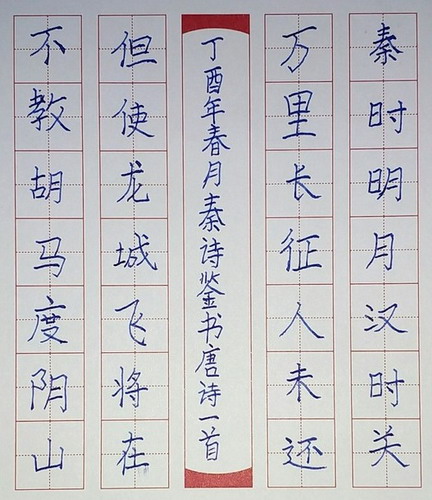 秦时明月汉时关
万里长征人未还
丁酉年春月秦诗鉴书唐诗一首
但使龙城飞将在
不教胡马度阴山